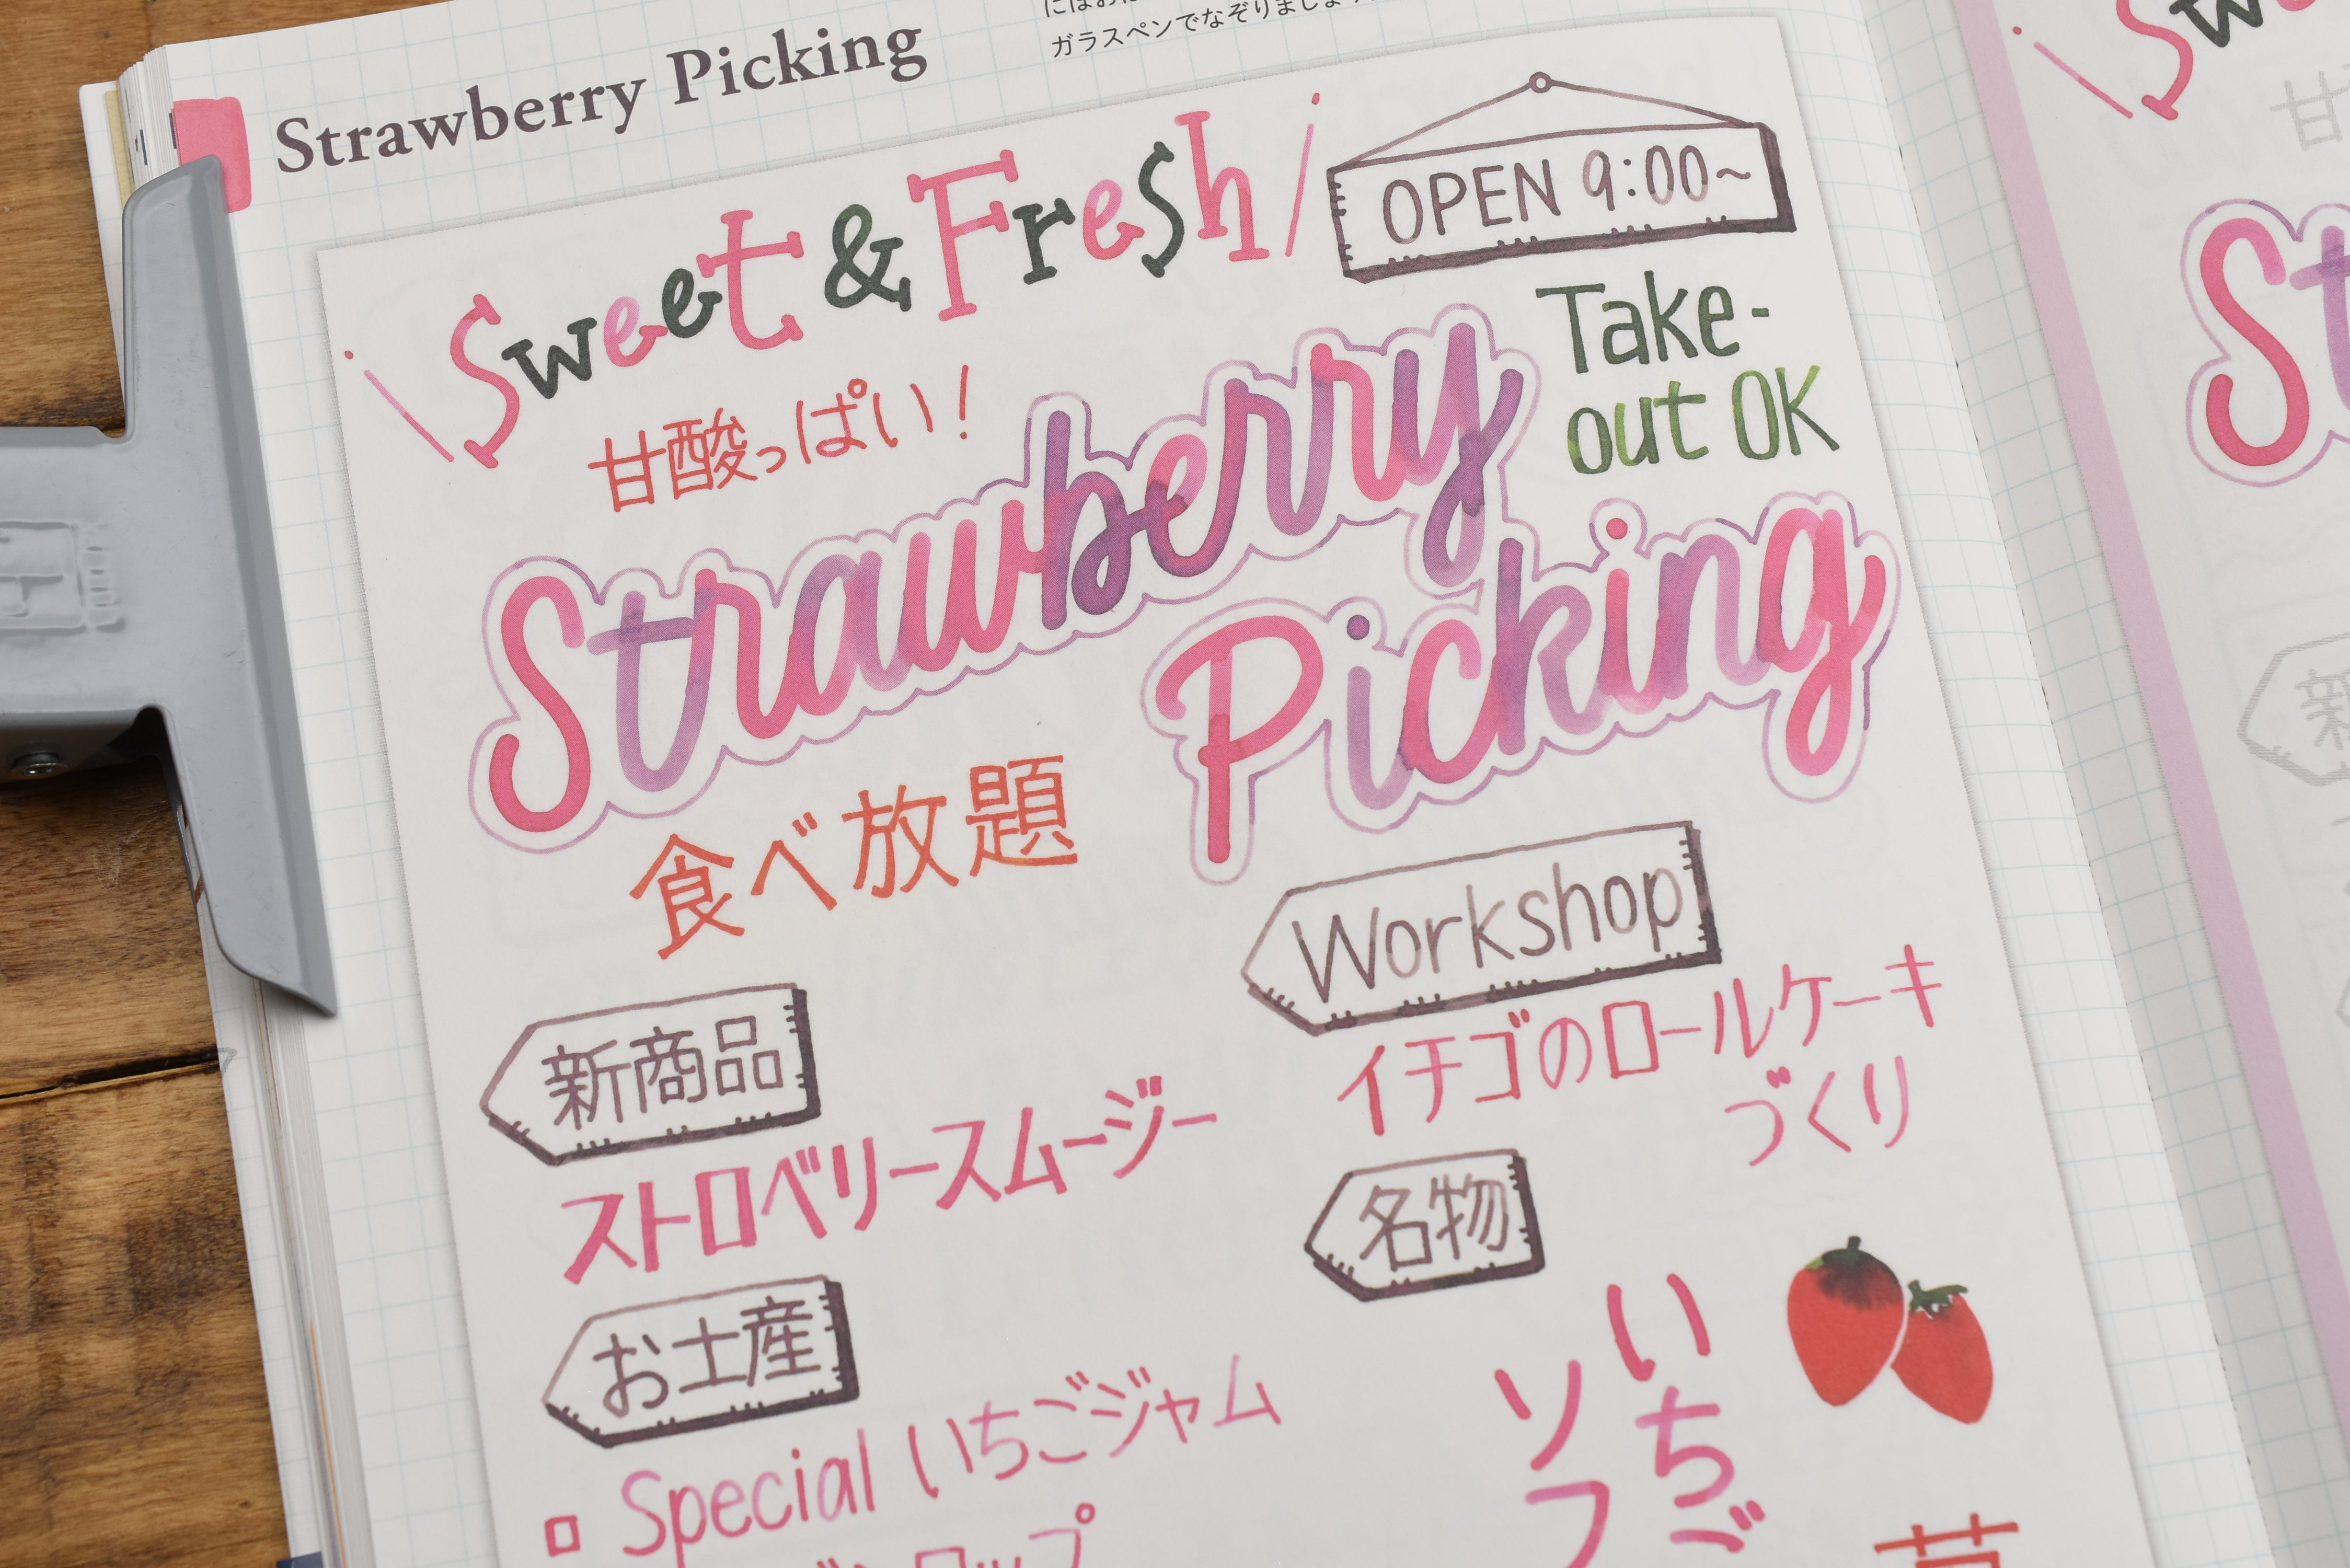 Strawberry Picking
ガラスペンでなぞりましょう
\Sweet & Fresh/
OPEN 9:00~
甘酸っぱい!
Take-
out OK
Strawberry
Picking
食べ放題
Workshop
イチゴのロールケーキ
づくり
新商品
ストロベリースムージー
名物
お土産
Special いちごジャム
いちご
ソフ